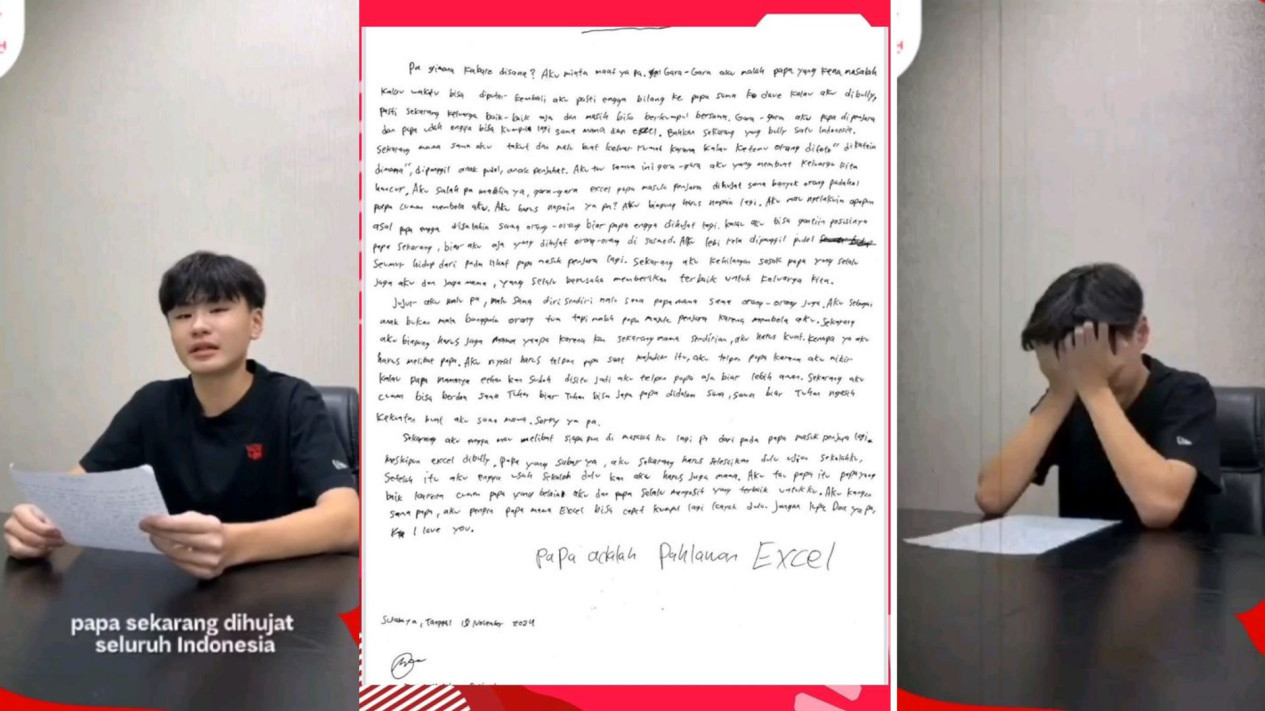 papa sekarang dihujat
seluruh Indonesia
Pa gimana kabare disana? Aku minta maaf ya pa. Gara-Gara aku malah papa yang kena masalah
kalau waktu bisa diputar kembali aku pasti engga bilang ke papa sama ko dave kalau aku dibully,
pasti sekarang keluarga baik-baik aja dan masih bisa berkumpul bersama. Gara-gara aku papa dipenjara
dan papa udah engga bisa kumpul lagi sama mama dan excel. Bahkan sekarang yang bully satu Indonesia.
Sekarang mama sama aku takut dan malu buat keluar rumah karena kalau ketemu orang difoto" dikatain
dimana", dipanggil anak pudel, anak penjahat. Aku tau semua ini gara-gara aku yang membuat keluarga kita
hancur. Aku salah pa maafin ya, gara-gara excel papa masuk penjara dihujat sama banyak orang padahal
papa cuman membela aku. Aku harus ngapain ya pa? Aku bingung harus ngapain lagi. Aku mau ngelakuin apapun
asal papa engga disalahin sama orang-orang biar papa engga dihujat lagi. kalau aku bisa gantiin posisinya
papa sekarang, biar aku aja yang dihujat orang-orang di sosmed. Aku lebi rela dipanggil pudel
Seumur hidup dari pada lihat papa masuk penjara lagi. Sekarang aku kehilangan sosok papa yang selalu
jaga aku dan jaga mama, yang selalu berusaha memberikan terbaik untuk keluarga kita.
Jujur aku malu pa, malu sama diri sendiri malu sama papa mama sama orang-orang juga. Aku sebagai
anak bukan mala banggain orang tua tapi malah papa masuk penjara karena membela aku. Sekarang
aku bingung harus jaga mama yaapa karena kan sekarang mama sendirian, aku harus kuat. Kenapa ya aku
harus melibat papa. Aku nyesal harus telpon papa saat kejadian itu, aku telpon papa karena aku mikir
kalau papa mamanya ethan kan sudah disitu jadi aku telpon papa aja biar lebih aman. Sekarang aku
cuman bisa berdoa sama Tuhan biar Tuhan bisa jaga papa didalam sana, sama biar Tuhan ngasih
kekuatan buat aku sama mama. Sorry ya pa.
Sekarang aku engga mau melibat siapa pun di masalah ku lagi pa dari pada papa masuk penjara lagi.
meskipun excel dibully. Papa yang sabar ya, aku sekarang harus selesaikan dulu ujian sekolahku.
Setelah itu aku engga usah sekolah dulu kan aku harus jaga mama. Aku tau papa itu papa yang
baik karena cuman papa yang belain aku dan papa selalu mengasih yang terbaik untukku. Aku kangen
sama papa, aku pengen papa mama Excel bisa cepet kumpul lagi kayak dulu. Jangan lupa Doa ya pa.
I love you.
papa adalah Pahlawan Excel
Surabaya, Tanggal 18 November 2024